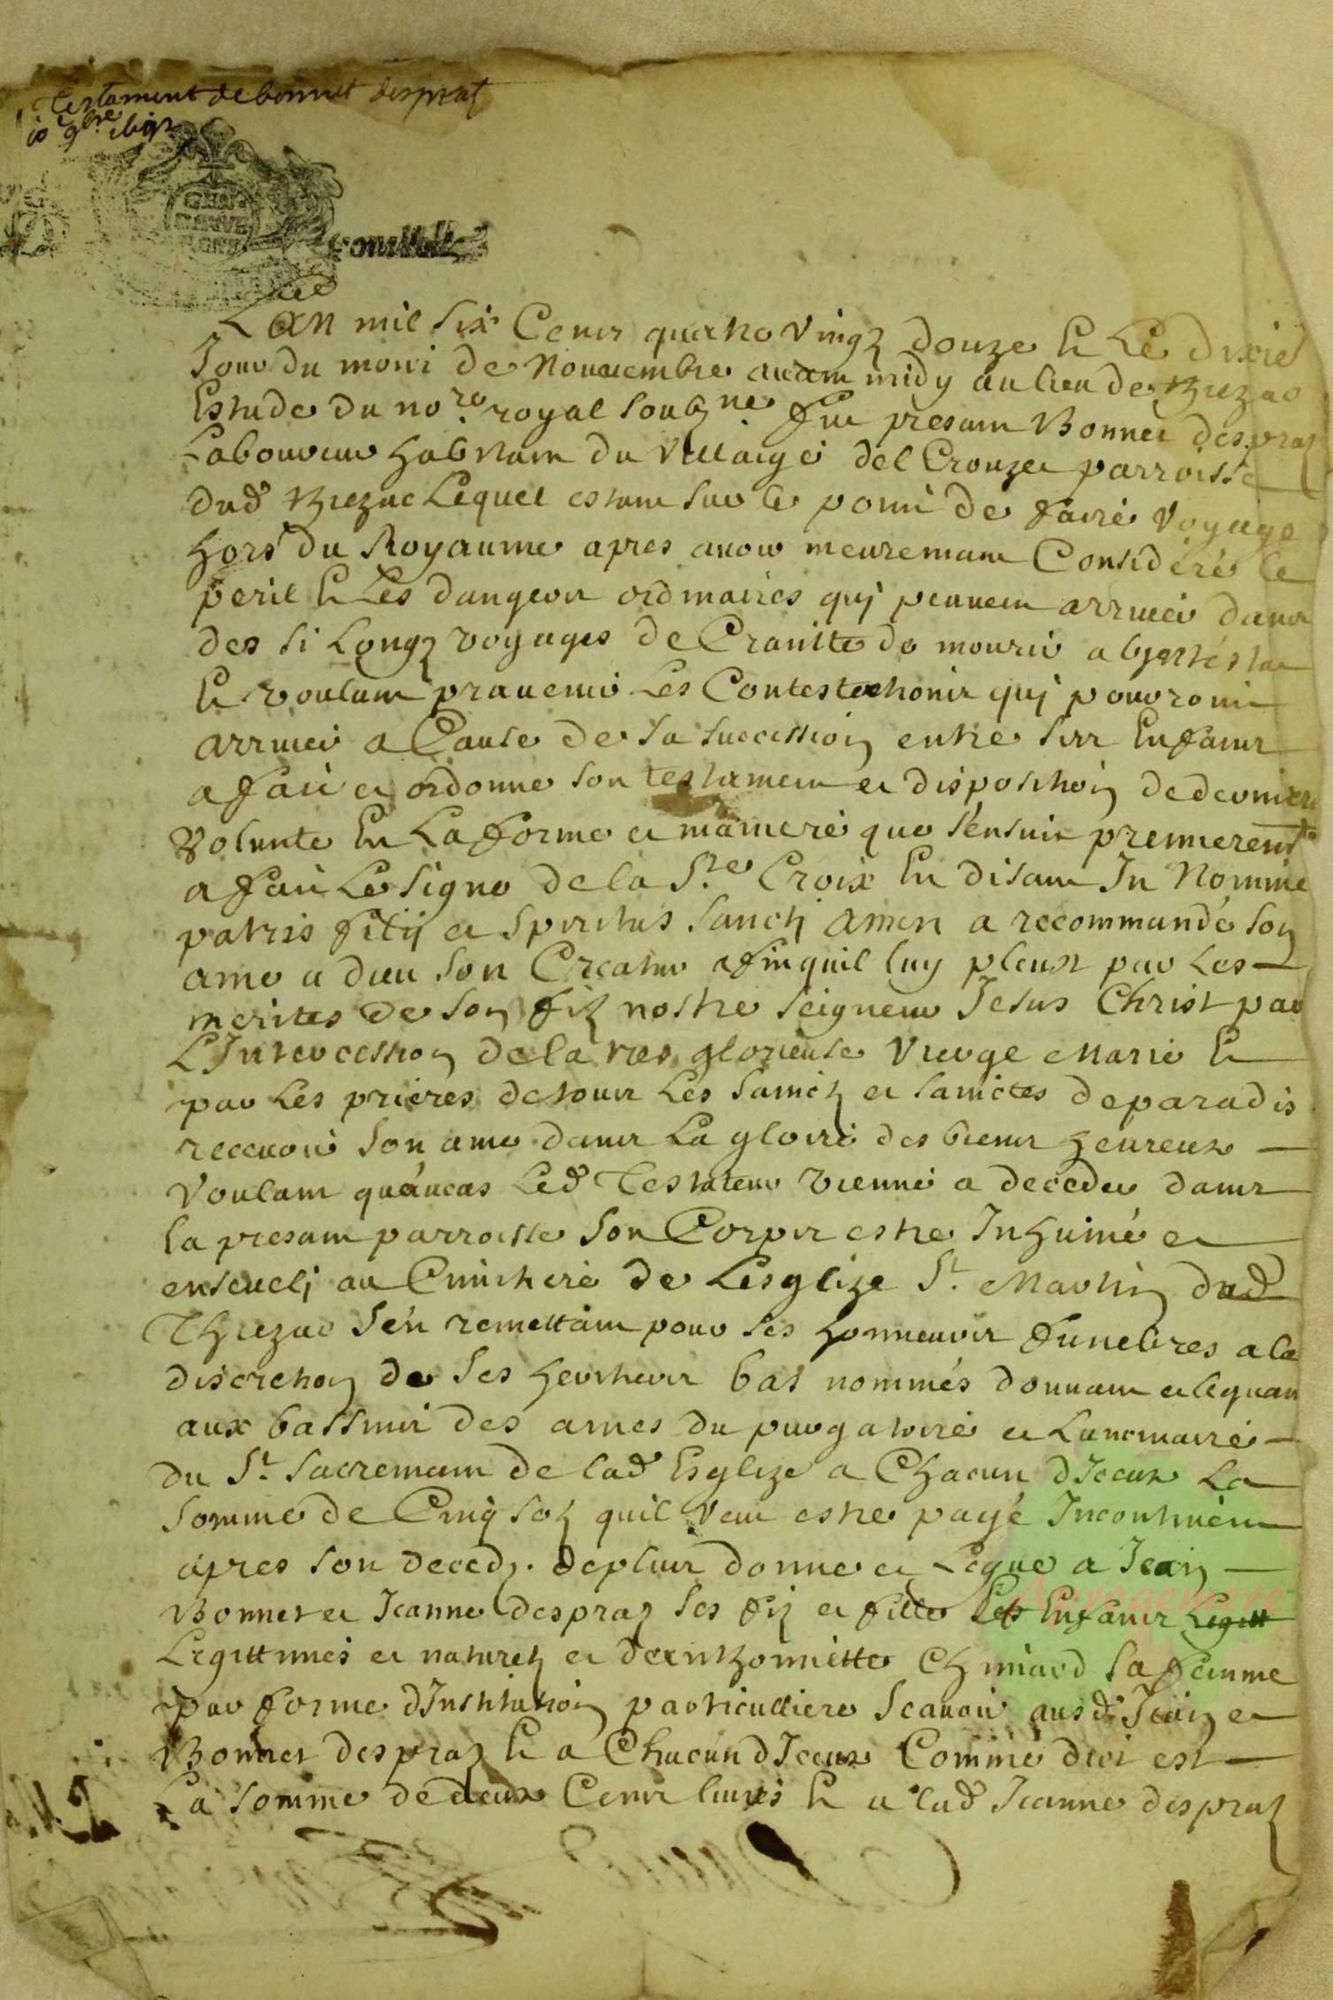 Testament de bonnet despratz
10e 9bre 1692
GEN
Lan mil six Cenn quatre vingtz douze et Le dixie
Jour du mois de Nouvembre avam midy au lieu de thiezac
Estude du nore royal soubzne fut presam Bonnet despratz
Laboureur habitam du villaige del Crouzet parroisse
dud thiezac Lequel estam sur le poinc de faire voyage
hors du Royaume apres avoir meuremam Consideré le
peril et Les dangeon ordinaires quj peuvem arriver dans
des si Longz voyages de Crainte de mourir
et voulam prevenir Les Contestations quj pouroint
arriver a Cause de sa succession entre ses Enfans
a faict et ordonne son testamem et disposition de derniere
Volunte En La forme et maniere que s'ensuit premierent
a faict Le signe de la Ste Croix En disam In Nomine
patris filij et spiritus sancti Amen a recommandé son
ame a dieu son Createur afin quil luy pleust par Les
merites de son filz nostre seigneur Jesus Christ par
L'Intercession de la tres glorieuse Vierge Marie et
par Les prieres de tous Les sainctz et sainctes de paradis
recevoir son ame dans La gloire des biens heureux
Voulam qu'aucas Led Testateur vienne a deceder dans
la presam parroisse son Corps estre Inhumé et
ensevelj au Cimitiere de Lesglize St Martin dud
Thiezac s'en remettam pour ses honneurs funebres a la
discretion de ses heritiers bas nommés donnam et leguam
aux bassins des ames du purgatoire et Luminaire
du St sacremam de lad Esglize a Chacun d'Iceux La
somme de Cinq solz quil veut estre payé Incontinem
apres son decedz. de plus donne et Legue a Jean
Bonnet et Jeanne despratz ses filz et fille Ses Enfans
Legittimes et naturelz et d'enthoniette Chmiard sa femme
par forme d'Institution particulliere scavoir ausd Jean et
Bonnet despratz et a Chacun d'Iceux Comme dict est
La somme de deux Cens livres et a lad Jeanne despratz